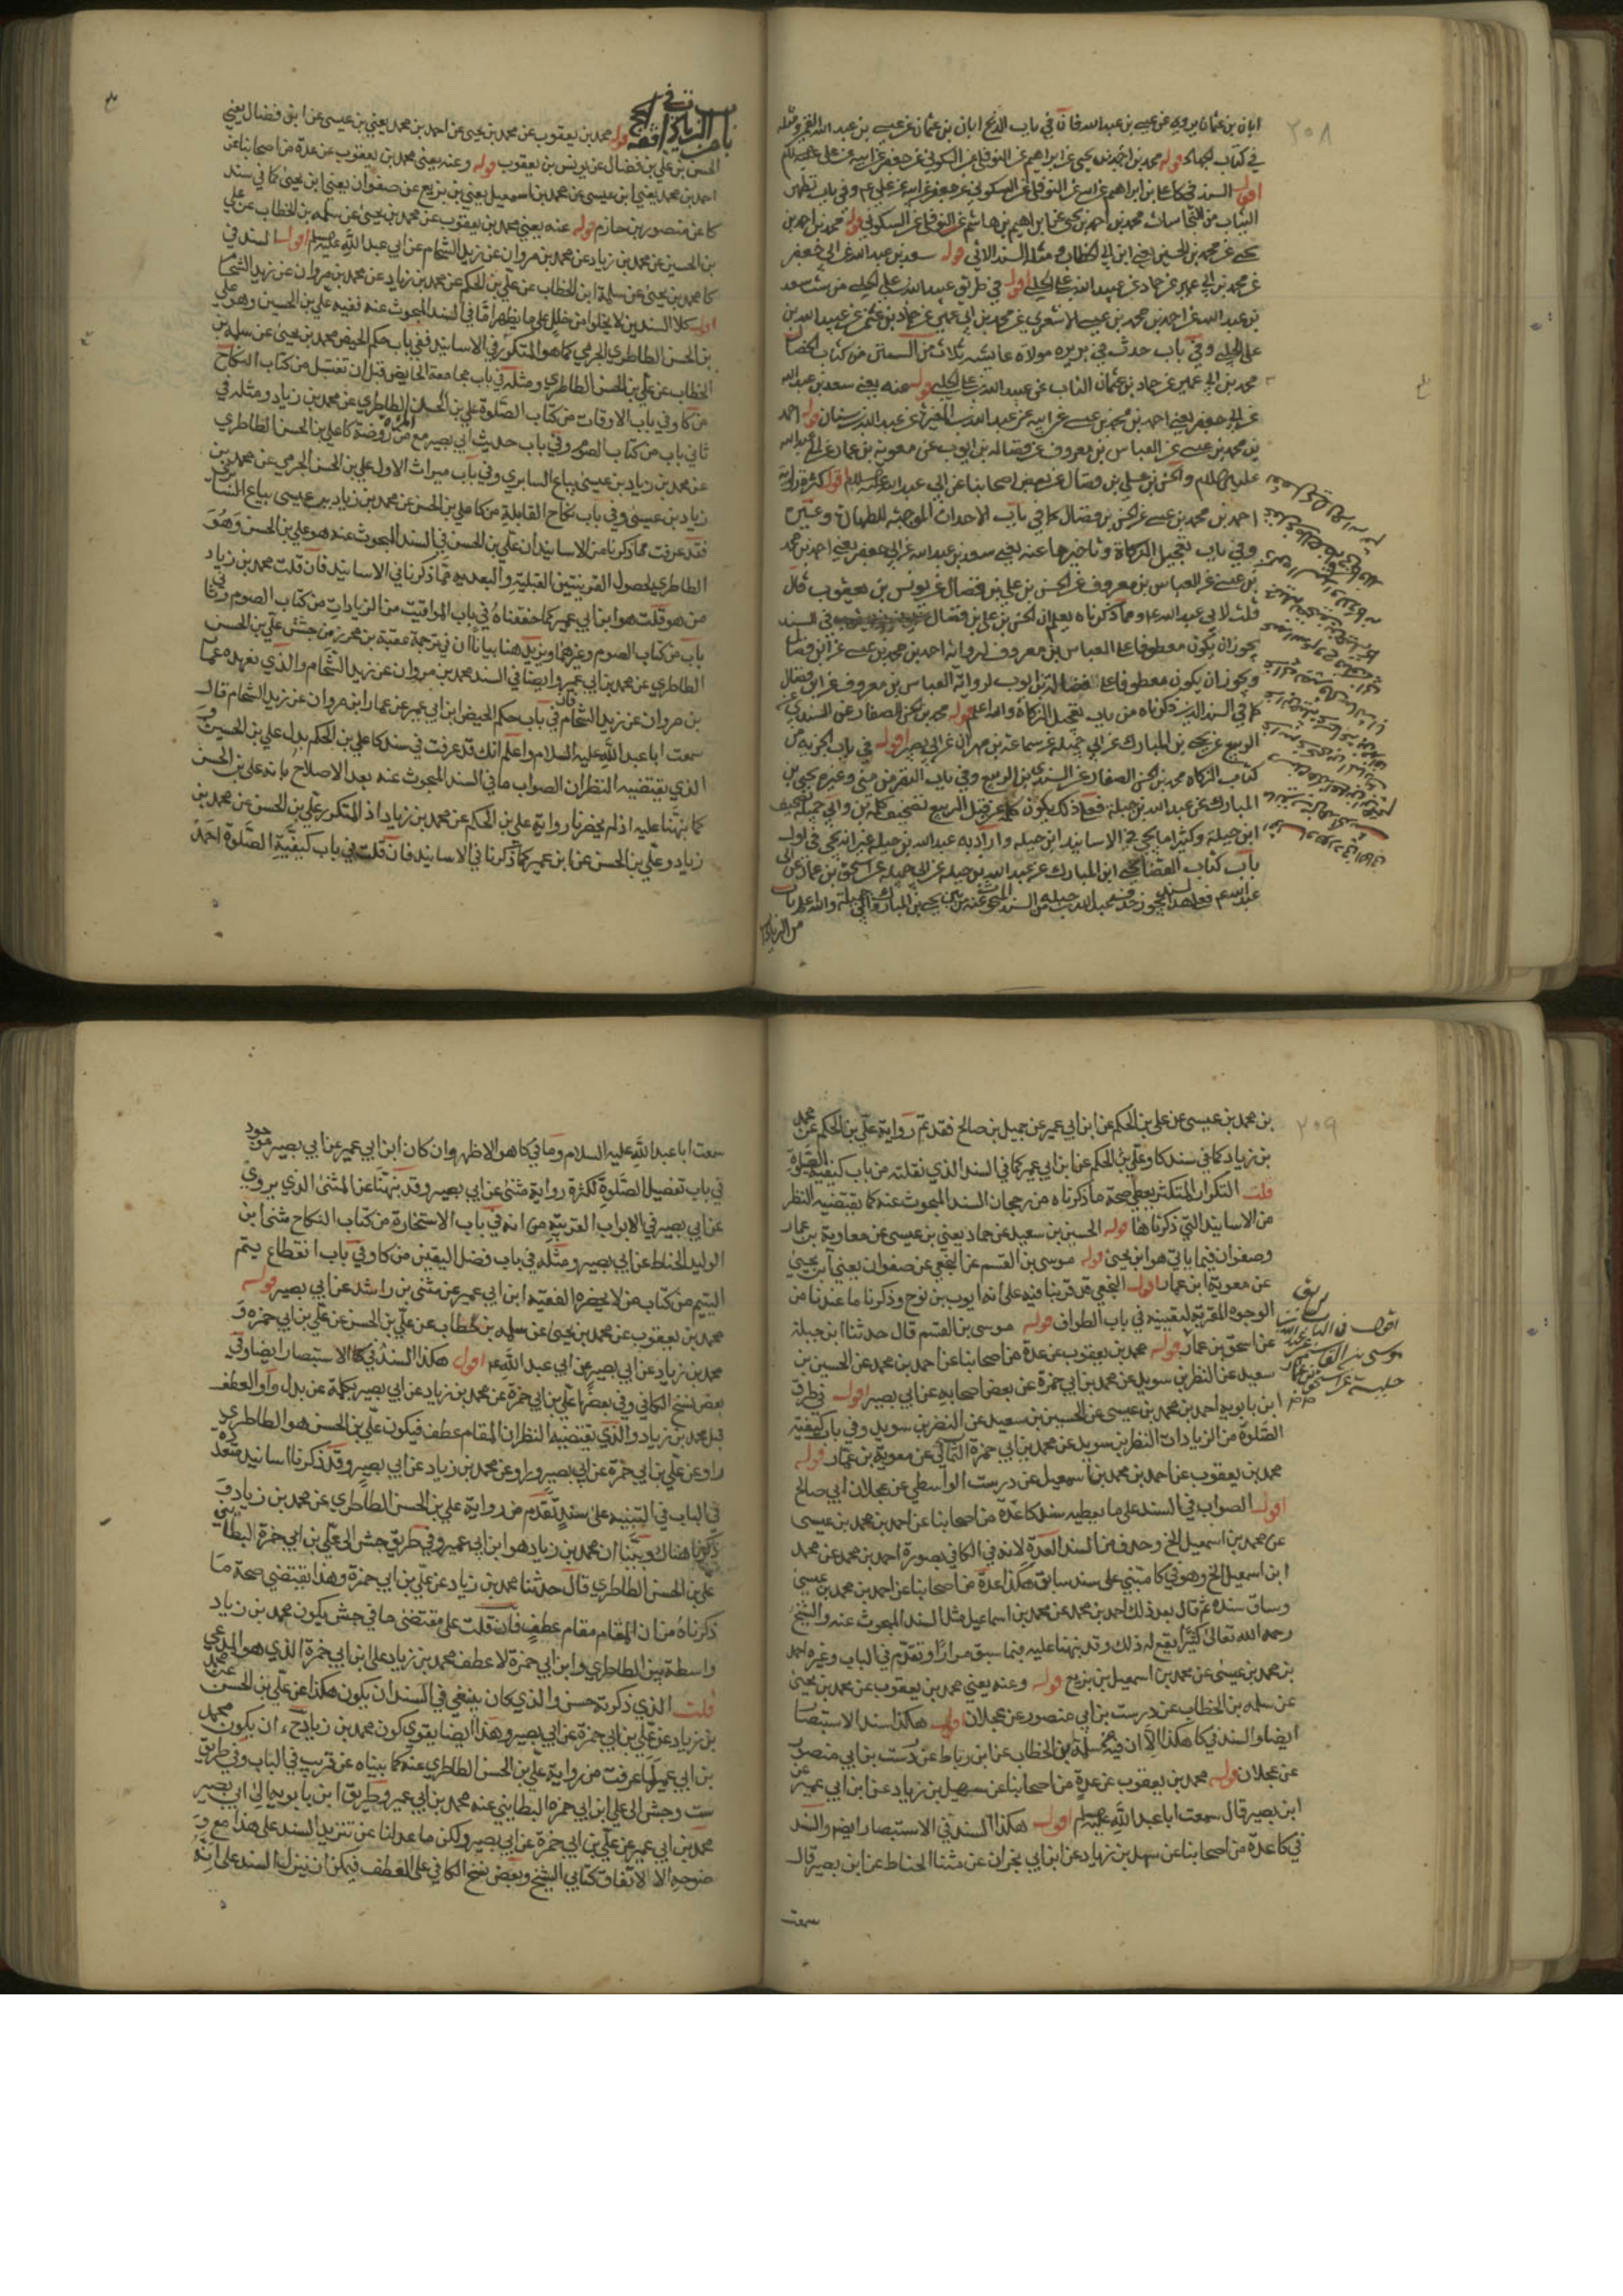 ٢٠٨
ابان بن عثمان يرويه عن عيسى بن عبدالله فان في باب الذبح ابان بن عثمان عن عيسى بن عبدالله القمي ومثله
في كتاب قوله محمد بن احمد بن يحيى عن ابراهيم عن النوفلي عن السكوني عن جعفر عن ابيه عن علي عليه السلام
اقول السند في كا علي بن ابراهيم عن ابيه عن النوفلي عن السكوني عن جعفر عن ابيه عن علي ع م وفي باب تطهير
الثياب من النجاسات محمد بن احمد بن يحيى عن ابراهيم بن هاشم عن النوفلي عن السكوني قوله محمد بن احمد بن
يحيى عن محمد بن الحسين يعني ابن ابي الخطاب ومثله السند الاتي قوله سعد بن عبدالله عن ابي جعفر
عن محمد بن ابي عمير عن حماد عن عبيدالله بن علي الحلبي اقول في طريق عبيدالله بن علي الحلبي من ست سعد
بن عبدالله عن احمد بن محمد بن عيسى الاشعري عن محمد بن ابي عمير عن حماد بن عثمن عن عبيدالله بن
علي الحلبي وفي باب حدث في بريره مولاة عايشه ثلاث من السنن من كتاب الخصال
محمد بن ابي عمير عن حماد بن عثمان الناب عن عبيدالله بن علي الحلبي قوله عنه يعني سعد بن عبدالله
عن ابي جعفر يعني احمد بن محمد بن عيسى عن ابيه عن عبدالله بن المغيرة عن عبدالله بن سنان قوله احمد
بن محمد بن عيسى عن العباس بن معروف عن فضاله بن ايوب عن معوية بن عمار عن ابي عبدالله
عليه السلام والحسن بن علي بن فضال عن بعض اصحابنا عن ابي عبدالله عليه السلام اقول كثرة رواية
احمد بن محمد بن عيسى عن الحسن بن فضال كما في باب الاحداث الموجبة للطهارة وغيره
وفي باب تعجيل الزكاة وتاخيرها عنه يعني سعد بن عبدالله عن ابي جعفر يعني احمد بن محمد
بن عيسى عن العباس بن معروف عن الحسن بن علي بن فضال عن يونس بن يعقوب قال
قلت لابي عبدالله ع م وما ذكرناه يعلم ان الحسن بن علي بن فضال في السند
يجوز ان يكون معطوفا على العباس بن معروف لرواية احمد بن محمد بن عيسى عن ابن فضال
ويجوز ان يكون معطوفا على فضالة بن ايوب لرواية العباس بن معروف عن ابن فضال
كما في السند الذي ذكرناه من باب تعجيل الزكاة والله اعلم قوله محمد بن الحسن الصفار عن السندي بن
الربيع عن يحيى بن المبارك عن ابي جميلة عن سماعة بن مهران عن ابي بصير اقول في باب الجزية من
كتاب الزكاه محمد بن الحسن الصفار عن السندي بن الربيع وفي باب النفر من منى وغيره يحيى بن
المبارك عن عبدالله بن جبلة فعلى ذلك يكون كلمة عن قبل الربيع تصحيف كلمة بن وابي جميلة تصحيف
ابن جبلة وكثيرا ما يجي في الاسانيد ابن جبله واراد به عبدالله بن جبله غير انه يجي في اول
باب كتاب القضا يحيى ابن المبارك عن عبدالله بن جبله عن ابي جميله عن اسحق بن عمار عن ابي
عبدالله ع م فعلى هذا السند يجوز حذف عبدالله بن جبله من السند المبحوث عنه بين يحيى بن المبارك وابي جميلة والله اعلم باب
من الزيادات
باب من الزيادات في فقه الحج قوله محمد بن يعقوب عن محمد بن يحيى عن احمد بن محمد يعني بن عيسى عن ابن فضال يعني
الحسن بن علي بن فضال عن يونس بن يعقوب قوله وعنه يعني محمد بن يعقوب عن عدة من اصحابنا عن
احمد بن محمد يعني ابن عيسى عن محمد بن اسمعيل يعني بن بزيع عن صفوان يعني ابن يحيى كما في سند
كا عن منصور بن حازم قوله عنه يعني محمد بن يعقوب عن محمد بن يحيى عن سلمه بن الخطاب عن علي
بن الحسين عن محمد بن زياد عن محمد بن مروان عن زيد الشحام عن ابي عبدالله عليه السلم اقول السند في
كا محمد بن يحيى عن سلمة ابن الخطاب عن علي بن الحكم عن محمد بن زياد عن محمد بن مروان عن زيد الشحام
اقول كلا السندين لا يخلوا من خلل على ما يظهر اما في السند المبحوث عنه ففيه علي بن الحسين وهو علي
بن الحسن الطاطري الجرمي كما هو المتكرر في الاسانيد ففي باب حكم الحيض محمد بن يحيى عن سلمه بن
الخطاب عن علي بن الحسن الطاطري ومثله في باب مجامعة الحايض قبل ان تغتسل من كتاب النكاح
من كا وفي باب الاوقات من كتاب الصلوة علي بن الحسن الطاطري عن محمد بن زياد ومثله في
ثاني باب من كتاب الصوم وفي باب حديث ابي بصير مع المراة من روضة كا علي بن الحسن الطاطري
عن محمد بن زياد بن عيسى بياع السابري وفي باب ميراث الاول علي بن الحسن الجرمي عن محمد بن
زياد بن عيسى وفي باب نكاح القابلة من كا علي بن الحسن عن محمد بن زياد بن عيسى بياع السابري
فقد عرفت مما ذكرنا من الاسانيد ان علي بن الحسن في السند المبحوث عنه هو علي بن الحسن وهو
الطاطري لحصول القرينتين القبلية والبعديه مما ذكرنا في الاسانيد فان قلت محمد بن زياد
من هو قلت هو ابن ابي عمير كما حققناه في باب المواقيت من الزيادات من كتاب الصوم وثاني
باب من كتاب الصوم وغيرهما ويزيد هنا بيانا ان في ترجمة عقبة بن محرز من جش علي بن الحسن
الطاطري عن محمد بن ابي عمير وايضا في السند محمد بن مروان عن زيد الشحام والذي نعهده عمار
بن مروان عن زيد الشحام فان في باب حكم الحيض ابن ابي عمير عن عمار ابن مروان عن زيد الشحام قال
سمعت ابا عبدالله عليه السلام واعلم انك قد عرفت في سند كا علي بن الحكم بدل علي بن الحسين و
الذي يقتضيه النظر ان الصواب ما في السند المبحوث عنه بعد الاصلاح بانه علي بن الحسن
كما نبهنا عليه اذ لم يحضرنا رواية علي بن الحكم عن محمد بن زياد اذ المتكرر علي بن الحسن عن محمد بن
زياد وعلي بن الحسن عن ابن ابي عمير كما ذكرنا في الاسانيد فان قلت في باب كيفية الصلوة احمد
٢٠٩
بن محمد بن عيسى عن علي بن الحكم عن ابن ابي عمير عن جميل بن صالح فقد تم رواية علي بن الحكم عن محمد
بن زياد كما في سند كا وعلي بن الحكم عن ابن ابي عمير كما في السند الذي نقلته من باب كيفية الصلوة
قلت التكرار المتكثر يعطي صحة ما ذكرناه من رجحان السند المبحوث عنه كما يقتضيه النظر
من الاسانيد التي ذكرناها قوله الحسين بن سعيد عن حماد يعني بن عيسى عن معاوية بن عمار
وصفوان فيما ياتي هو ابن يحيى قوله موسى بن القسم عن النخعي عن صفوان يعني ابن يحيى
عن معوية ابن عمار اقول النخعي قد قربنا فيه على انه ايوب بن نوح وذكرنا ما عندنا من
الوجوه المقربة لتعيينه في باب الطواف قوله موسى بن القسم قال حدثنا ابن جبلة
عن اسحق بن عمار قوله محمد بن يعقوب عن عدة من اصحابنا عن احمد بن محمد عن الحسين بن
سعيد عن النضر بن سويد عن محمد بن ابي حمزة عن بعض اصحابه عن ابي بصير اقول في طرق
ابن بابويه احمد بن محمد بن عيسى عن الحسين بن سعيد عن النضر بن سويد وفي باب كيفية
الصلوة من الزيادات النظر بن سويد عن محمد بن ابي حمزة الثمالي عن معوية بن عمار قوله
محمد بن يعقوب عن احمد بن محمد بن اسمعيل عن درست الواسطي عن عجلان ابي صالح
اقول الصواب في السند على ما يعطيه سند كا عدة من اصحابنا عن احمد بن محمد بن عيسى
عن محمد بن اسمعيل الخ وحذف من السند العدة لانه في الكافي بصورة احمد بن محمد عن محمد
ابن اسمعيل الخ وهو في كا مبتني على سند سابق هكذا عدة من اصحابنا عن احمد بن محمد بن عيسى
وساق سنده ثم قال بعد ذلك احمد بن محمد عن محمد بن اسماعيل مثل السند المبحوث عنه والشيخ
رحمه الله تعالى كثيرا يقع له ذلك وقد نبهنا عليه فيما سبق مرارا وتقدم في الباب وغيره احمد
بن محمد بن عيسى عن محمد بن اسمعيل بن بزيع قوله وعنه يعني محمد بن يعقوب عن محمد بن يحيى
عن سلمه بن الخطاب عن درست بن ابي منصور عن عجلان اقول هكذا سند الاستبصار
ايضا والسند في كا هكذا الا ان فيه سلمة بن الخطاب عن ابن رباط عن درست بن ابي منصور
عن عجلان قوله محمد بن يعقوب عن عدة من اصحابنا عن سهيل بن زياد عن ابن ابي عمير عن
ابن بصير قال سمعت ابا عبدالله عليه السلم اقول هكذا السند في الاستبصار ايضا والسند
في كا عدة من اصحابنا عن سهل بن زياد عن ابن ابي نجران عن مثنا الحناط عن ابن بصير قال
سمعت
اقول في
موسى بن القاسم عن عبدالله بن
جبلة عن اسحق بن عمار
سمعت ابا عبدالله عليه السلام وما في كا هو الاظهر وان كان ابن ابي عمير عن ابي بصير موجود
في باب تفصيل الصلوة لكثرة رواية مثنى عن ابي بصير وقد نبهنا عن المثنى الذي يروي
عن ابي بصير في الابواب القريبة من انه في باب الاستخارة من كتاب النكاح مثنى ابن
الوليد الحناط عن ابي بصير ومثله في باب فضل اليقين من كا وفي باب انقطاع يتم
اليتيم من كتاب من لا يحضره الفقيه ابن ابي عمير عن مثنى بن راشد عن ابي بصير قوله
محمد بن يعقوب عن محمد بن يحيى عن سلمه بن خطاب عن علي بن الحسن عن علي بن ابي حمزه و
محمد بن زياد عن ابي بصير عن ابي عبدالله ع م اقول هكذا السند في كا الاستبصار ايضا وفي
بعض نسخ الكافي وفي بعضها علي بن ابي حمزة عن محمد بن زياد عن ابي بصير بكلمة عن بدل واو العطف
قبل محمد بن زياد والذي يقتضيه النظر ان المقام عطف فيكون علي بن الحسن هو الطاطري
راو عن علي بن ابي حمزة عن ابي بصير وراو عن محمد بن زياد عن ابي بصير وقد ذكرنا اسانيد متعدده
في الباب في التنبيه على سند تقدم من رواية علي بن الحسن الطاطري عن محمد بن زياد و
ذكرنا هناك وبينا ان محمد بن زياد هو ابن ابي عمير وفي طريق جش الى علي بن ابي حمزة البطائني
علي بن الحسن الطاطري قال حدثنا محمد بن زياد عن علي بن ابي حمزة وهذا يقتضي صحة ما
ذكرناه من ان المقام مقام عطف فان قلت على مقتضى ما في جش يكون محمد بن زياد
واسطة بين الطاطري وابن ابي حمزة لا عطف محمد بن زياد على ابن ابي حمزة الذي هو المدعي
قلت الذي ذكرته حسن والذي كان ينبغي في السند ان يكون هكذا عن علي بن الحسن عن محمد
بن زياد عن علي بن ابي حمزة عن ابي بصير وهذا ايضا يقوي كون محمد بن زياد ان يكون محمد
بن ابي عمير لما عرفت من رواية علي بن الحسن الطاطري عنه كما بيناه عن قريب في الباب وفي طريق
ست وجش الى علي ابن ابي حمزه البطايني عنه محمد بن ابي عمير وطريق ابن بابويه الى ابي بصير
محمد بن ابي عمير عن علي بن ابي حمزة عن ابي بصير ولكن ما عدلنا عن تنزيل السند على هذا مع و
ضوحه الا لاتفاق كتابي الشيخ وبعض نسخ الكافي على العطف فيمكن ان ننزل السند على انه